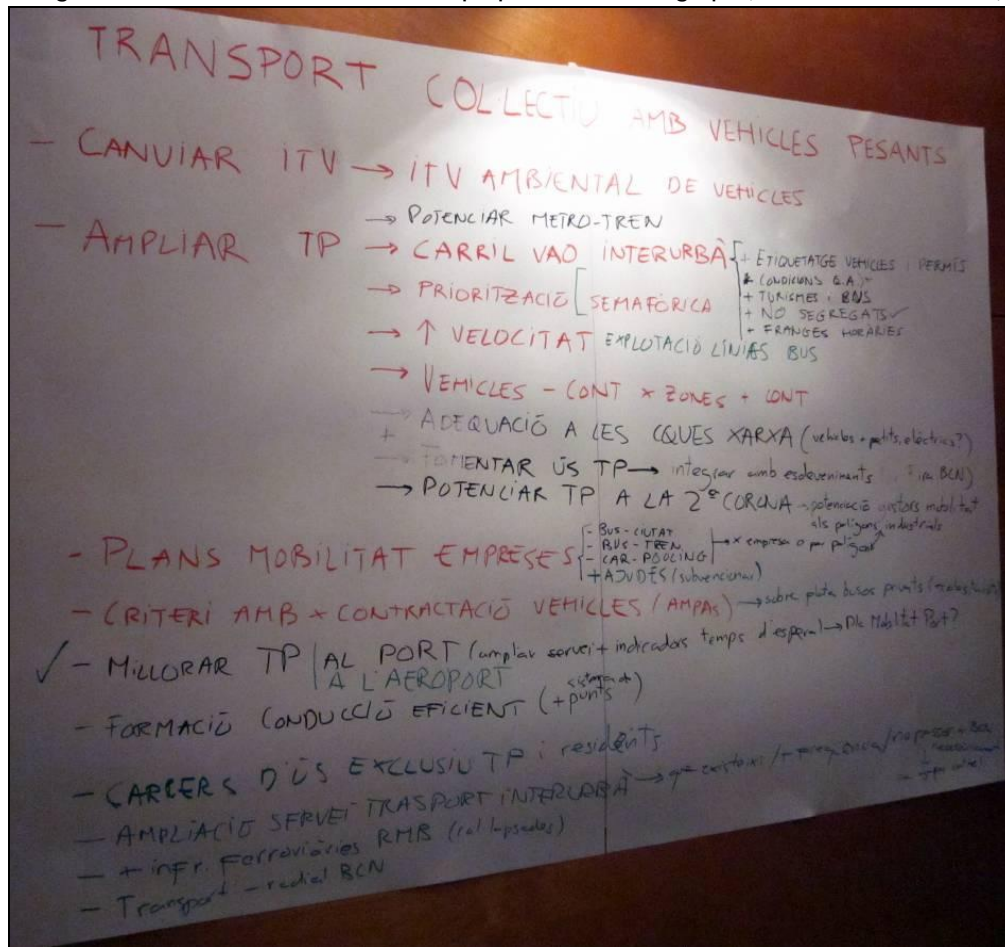 TRANSPORT COL·LECTIU AMB VEHICLES PESANTS
- CANVIAR ITV → ITV AMBIENTAL DE VEHICLES
→ POTENCIAR METRO-TREN
- AMPLIAR TP → CARRIL VAO INTERURBÀ
+ ETIQUETATGE VEHICLES i PERMÍS
CONDICIONS Q.A.
+ TURISMES i BUS
+ NO SEGREGATS ✓
+ FRANGES HORÀRIES
→ PRIORITZACIÓ [SEMAFÒRICA
→ ↑ VELOCITAT EXPLOTACIÓ LÍNIAS BUS
→ VEHICLES - CONT x ZONES + CONT
→ ADEQUACIÓ A LES CQUES XARXA (vehicles + petits, elèctrics?)
+ → FOMENTAR ÚS TP → integrar amb esdeveniments BCN)
→ POTENCIAR TP A LA 2ª CORONA → potenciació gestors mobilitat
als polígons industrials
- PLANS MOBILITAT EMPRESES
- BUS-CIUTAT
- BUS-TREN
- CAR-POOLING
+ AJUDES (subvencionar)
→ x empresa o per polígons
- CRITERI AMB x CONTRACTACIÓ VEHICLES (AMPAs) → sobre flota busos privats
✓ - MILLORAR TP AL PORT (ampliar servei + indicadors temps d'espera) → Mobilitat Port?
A L'AEROPORT
- FORMACIÓ CONDUCCIÓ EFICIENT (+ punts)
- CARRERS D'ÚS EXCLUSIU TP i residents
- AMPLIACIÓ SERVEI TRASPORT INTERURBÀ →
- + infr. Ferroviàries RMB (col·lapsades)
- Transport - radial BCN